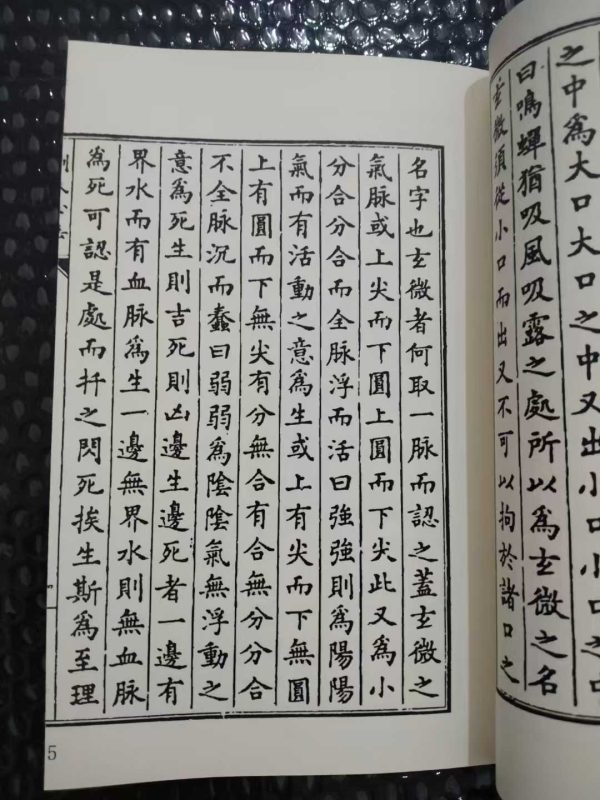 之中爲大口大口之中又出小口小口之中
曰鳴蟬猶吸風吸露之處所以爲玄微之名
玄微須從小口而出又不可以拘於諸口之
名字也玄微者何取一脉而認之蓋玄微之
氣脉或上尖而下圓上圓而下尖此又爲小
分合分合而全脉浮而活曰強強則爲陽陽
氣而有活動之意爲生或上有尖而下無圓
上有圓而下無尖有分無合有合無分分合
不全脉沉而蠢曰弱弱爲陰陰氣無浮動之
意爲死生則吉死則凶邊生邊死者一邊有
界水而有血脉爲生一邊無界水則無血脉
爲死可認是處而扦之閃死挨生斯爲至理
5